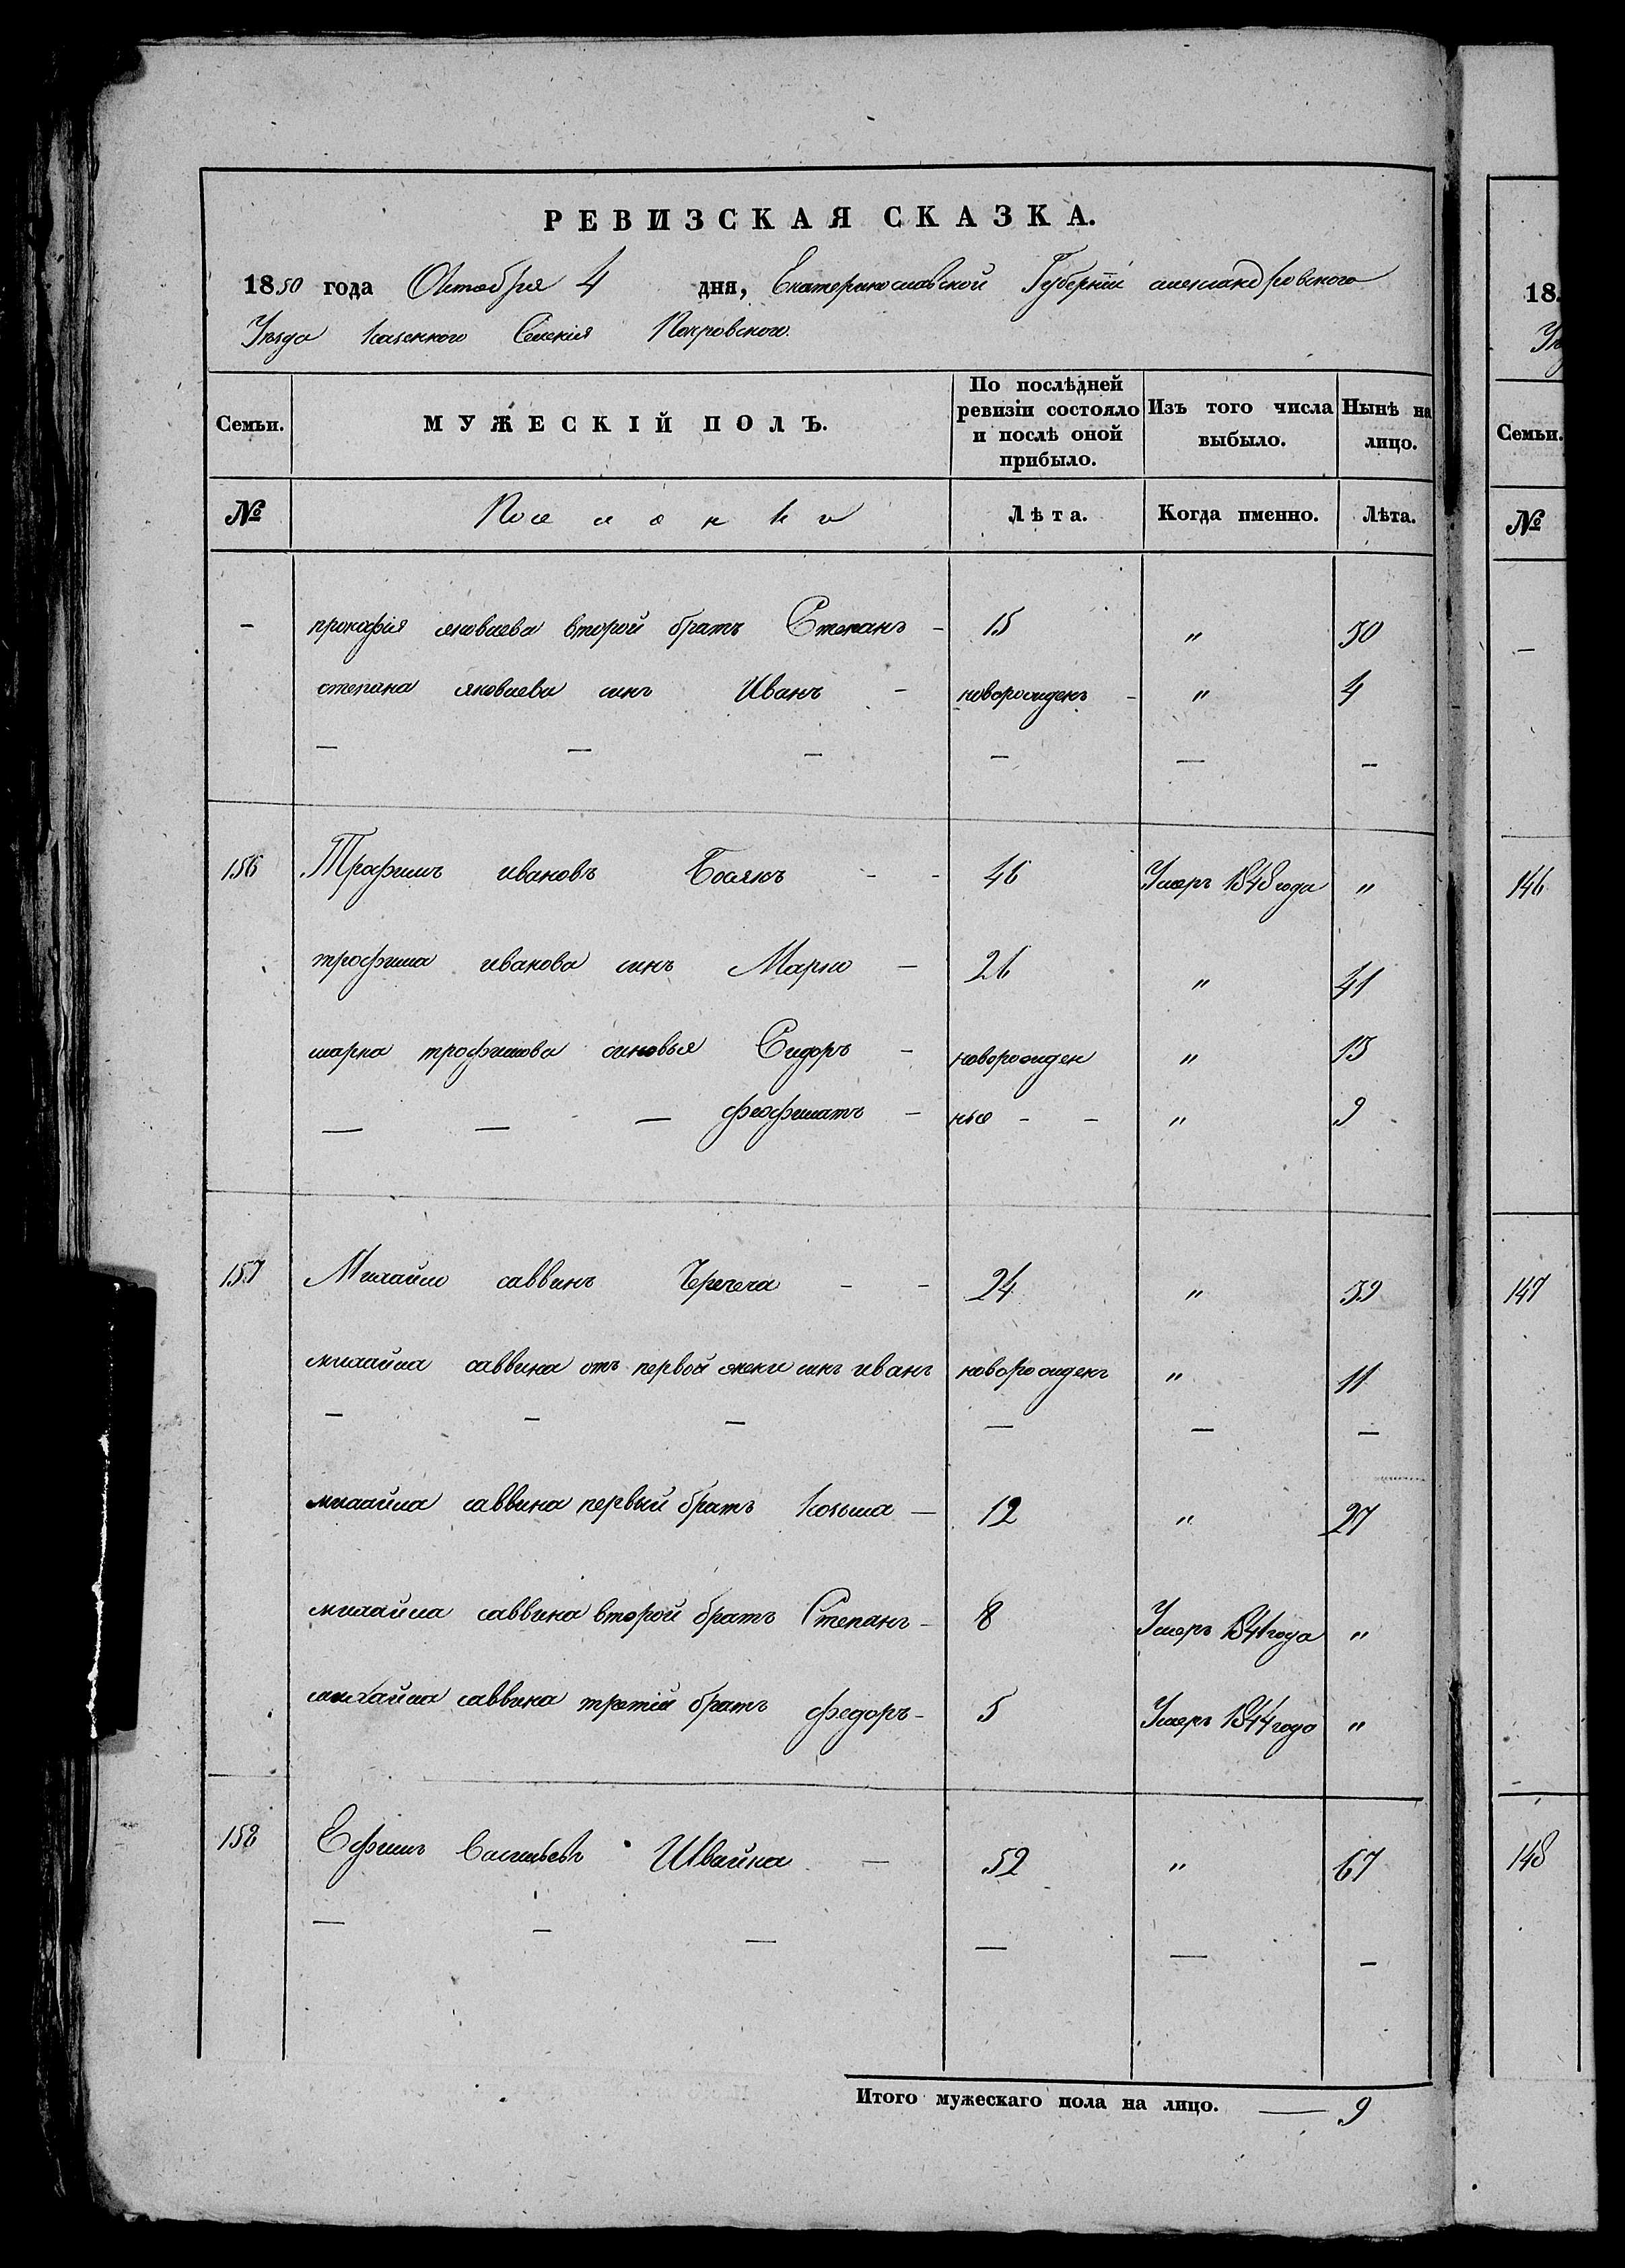 РЕВИЗСКАЯ СКАЗКА.
1850 года Октября 4 дня, Екатеринославской Губерніи александровского
Уезда казенного Селенія Покровского.
Семьи. МУЖЕСКІЙ ПОЛЪ. По послѣдней ревизіи состояло и послѣ оной прибыло. Изъ того числа выбыло. Нынѣ на лицо.
№ Лѣта. Когда именно. Лѣта.
- прокофія яковлева второй братъ Степанъ - 15 " 30
степана яковлева синъ Иванъ - новорожденъ - " 4
— — — — — —
156 Трофимъ ивановъ - - 46 Умеръ 1848 года "
трофима иванова синъ Марко — 26 " 41
марка трофимова синовья Сидоръ - новорожден " 13
— — — феофилатъ - ные - - " 9
157 Михайло саввинъ Черечеча - - 24 " 39
михайла саввина отъ первой жени синъ иванъ новорожденъ " 11
— — — — — —
михайла саввина первый братъ Козьма — 12 " 27
михайла саввина второй братъ Степанъ - 8 Умеръ 1841 года "
михайла саввина третій братъ федоръ - 5 Умеръ 1844 года "
158 Ефимъ Васильевъ Швайка — 52 " 67
— — — — — —
Итого мужескаго пола на лицо. — 9
18
Семьи.
№
146
147
148